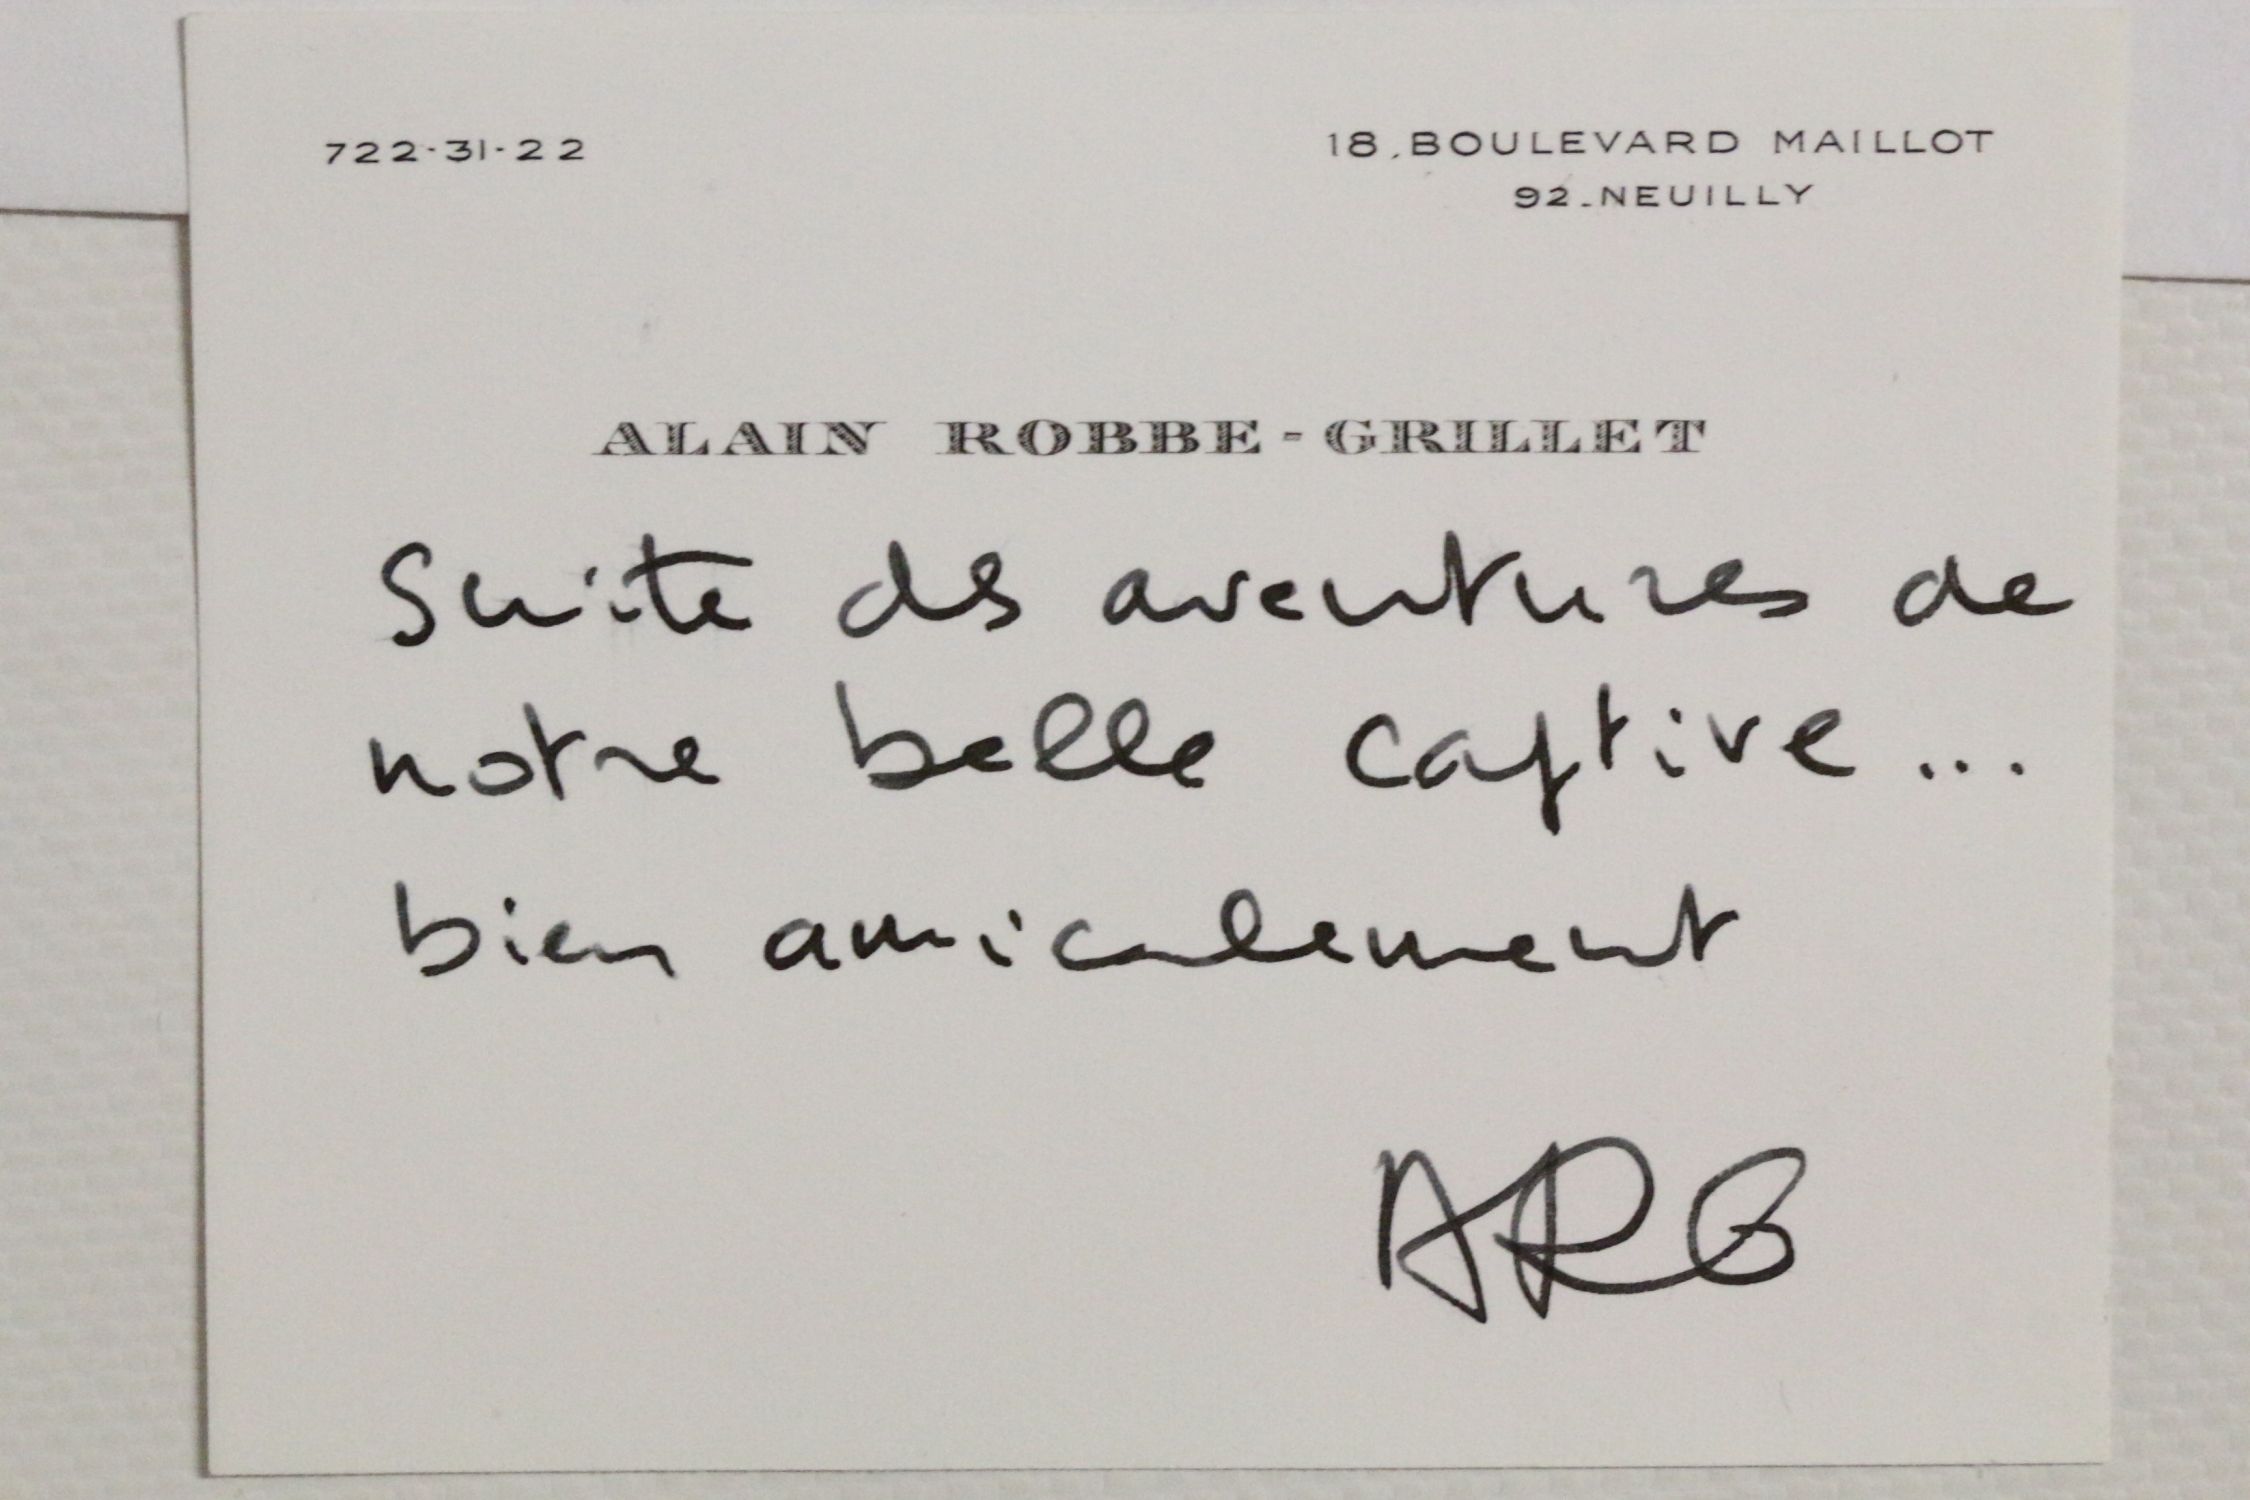 722-31-22
18, BOULEVARD MAILLOT
92-NEUILLY
ALAIN ROBBE-GRILLET
Suite des aventures de
notre belle captive...
bien amicalement
ARG